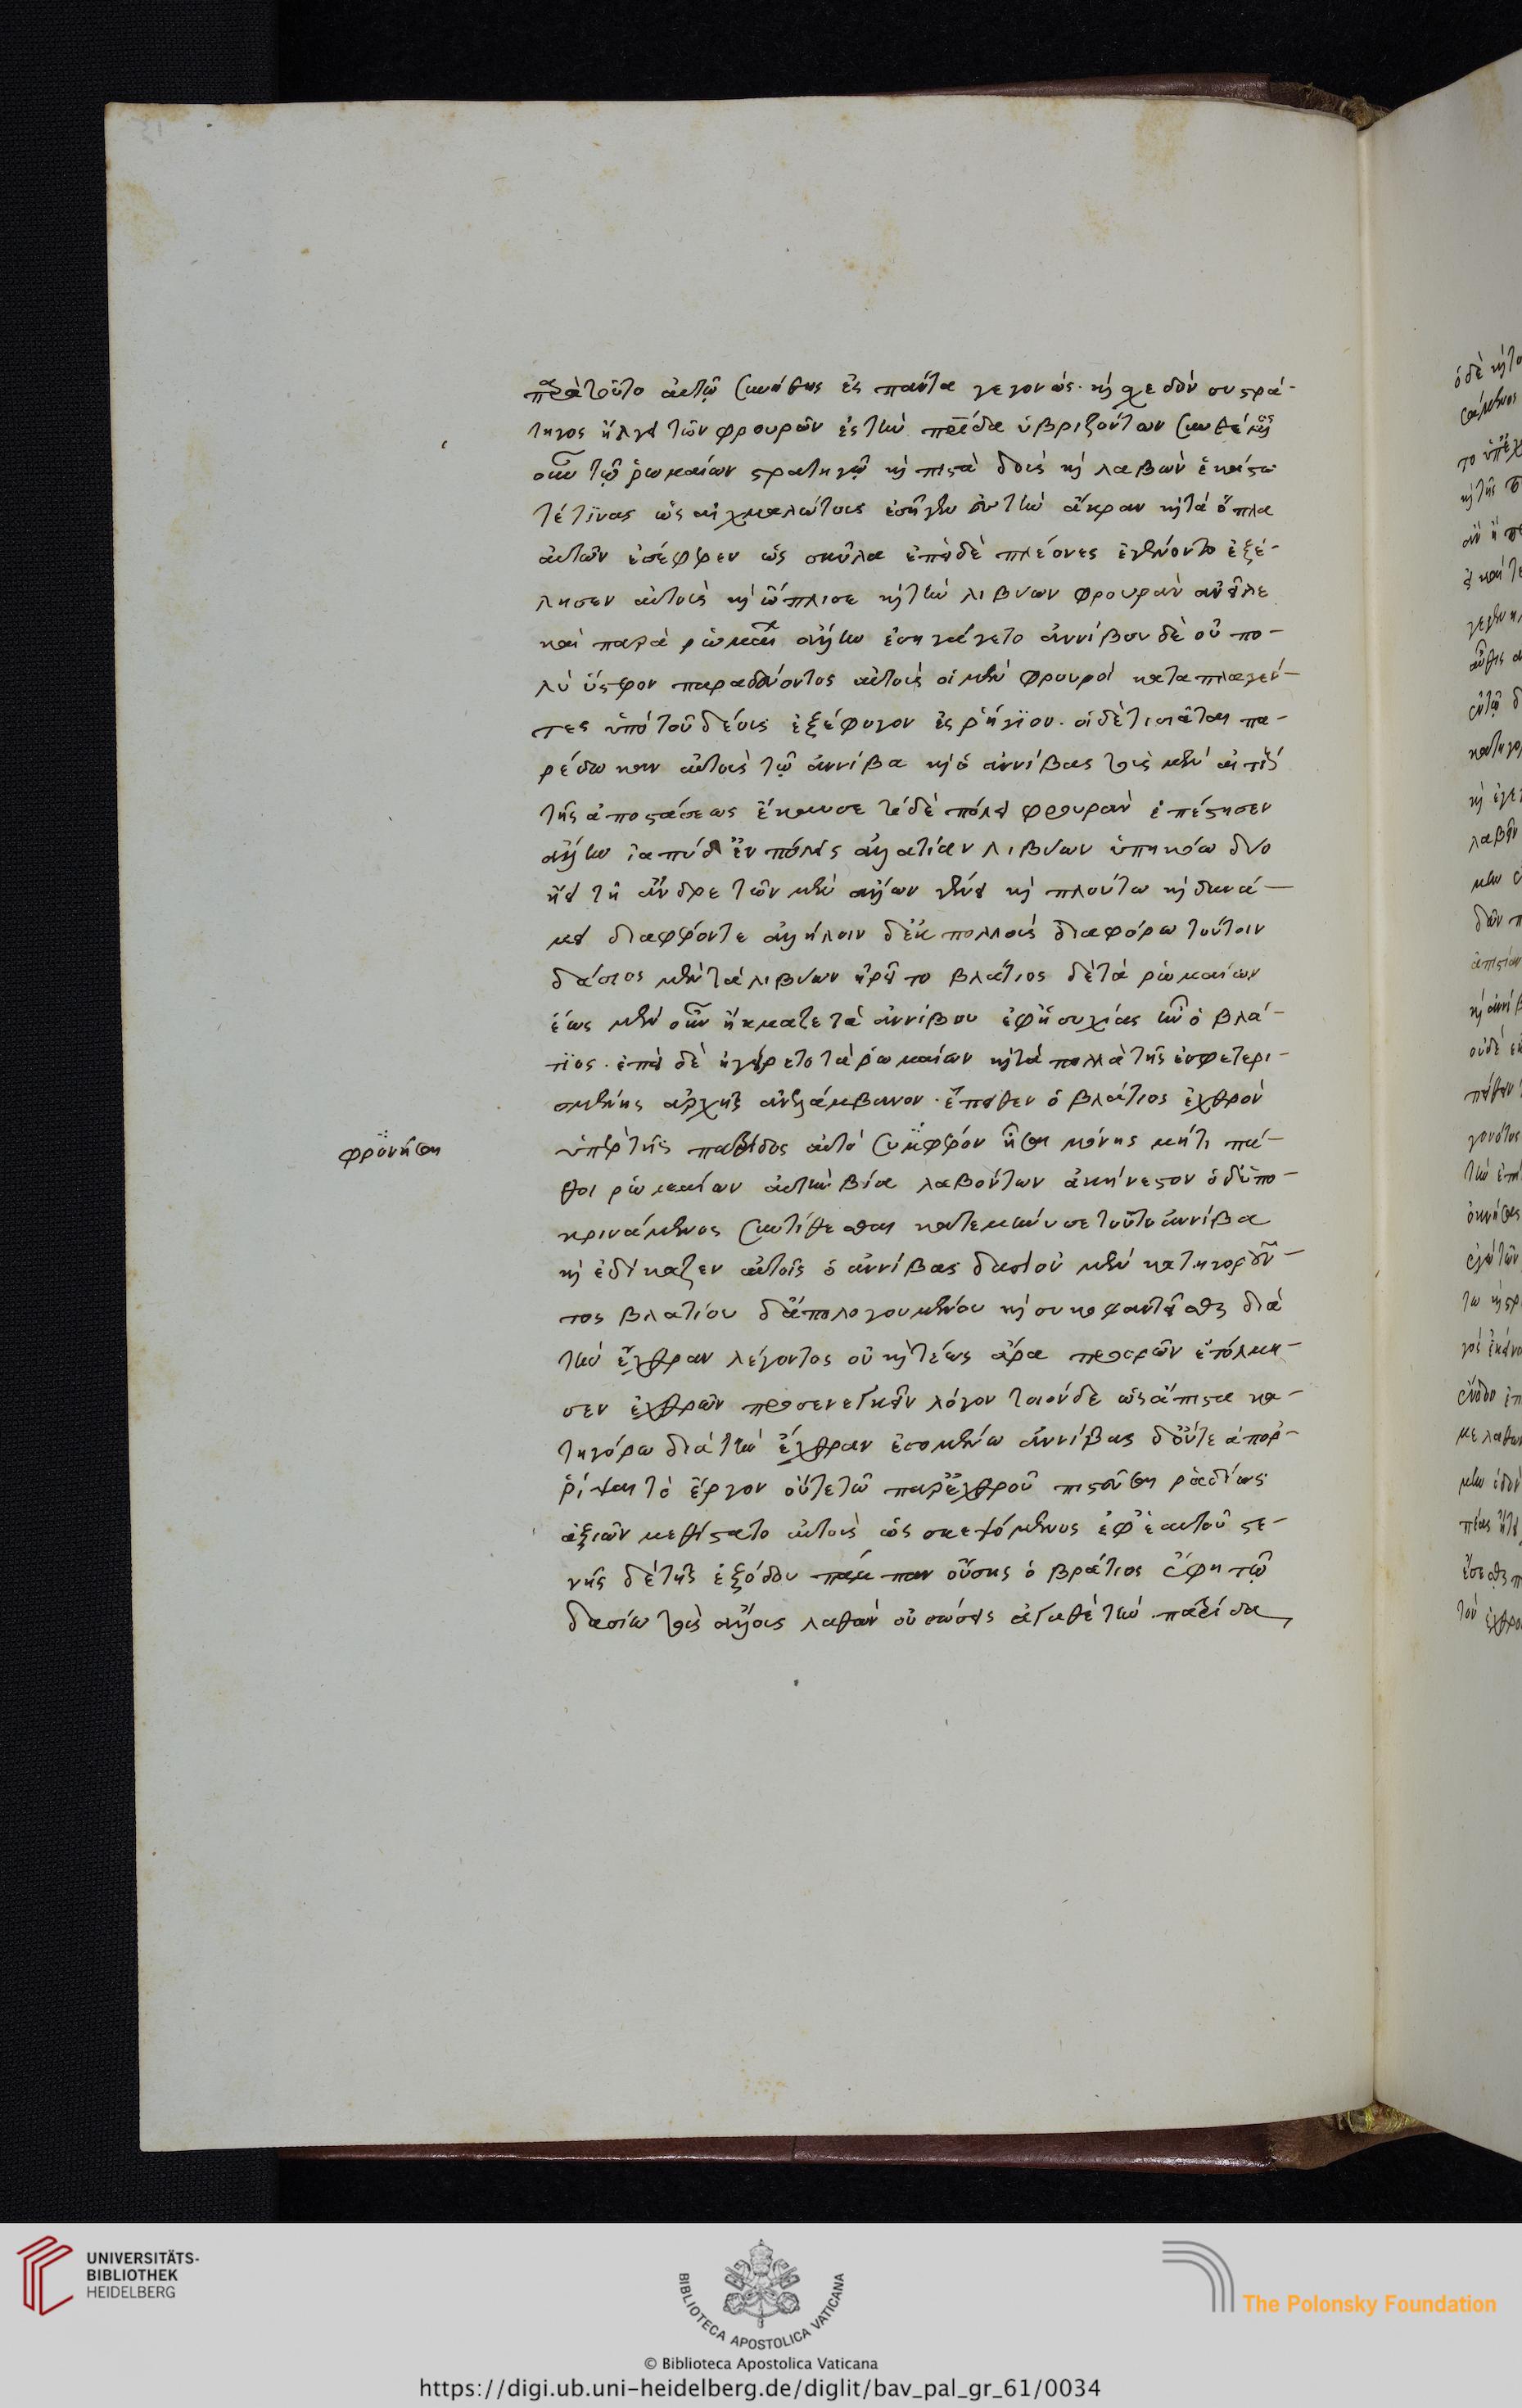 παρὰ τοῦτο αὐτῷ συνήθης ἐς πάντα γεγονώς· καὶ σχεδὸν συστρά-
τηγος ἤλγει τῶν φρουρῶν ἐς τὴν πατρίδα ὑβριζόντων συνθέμενος
οὖν τῷ ῥωμαίων στρατηγῷ καὶ πιστὰ δοὺς καὶ λαβὼν ἑκάστο
τέ τινας ὡς αἰχμαλώτους ἐσῆγεν ἐς τὴν ἄκραν καὶ τὰ ὅπλα
αὐτῶν ἐσέφερεν ὡς σκῦλα ἐπεὶ δὲ πλέονες ἐγένοντο ἐξέ-
λυσεν αὐτοὺς καὶ ὥπλισε καὶ τὴν λιβύων φρουρὰν ἀνεῖλε
καὶ παρὰ ῥωμαίων ἄλλην ἐσηγάγετο ἀννίβου δὲ οὐ πο-
λὺ ὕστερον παραδεύοντος αὐτοὺς οἱ μὲν φρουροὶ καταπλαγέν-
τες ὑπὸ τοῦ δέους ἐξέφυγον ἐς ῥήγιον. οἱ δὲ τισιᾶται πα-
ρέδωκαν αὐτοὺς τῷ ἀννίβα καὶ ὁ ἀννίβας τοὺς μὲν αἰτίους
τῆς ἀποστάσεως ἔκαυσε τῇ δὲ πόλει φρουρὰν ἐπέστησεν
ἄλλην ἰαπύγ ἐν πόλεις ἀλατίαν λιβύων ὑπηκόω δύο
ἤστ ἄνδρε τῶν μὲν ἄλλων γένει καὶ πλούτω καὶ δυνά-
μει διαφέροντε ἀλλήλοιν δ' ἐκ πολλοῦ διαφόρω τούτοιν
δάσιος μὲν τὰ λιβύων ᾑρεῖτο βλάτιος δὲ τὰ ῥωμαίων
ἕως μὲν οὖν ἤκμαζε τὰ ἀννίβου ἐφ' ἡσυχίας ἦν ὁ βλά-
τιος. ἐπεὶ δὲ ἠγείρετο τὰ ῥωμαίων καὶ τὰ πολλὰ τῆς ἐσφετερι-
σμένης ἀρχῆς ἀνελάμβανον. ἔπειθεν ὁ βλάτιος ἐχθρὸν
φρονῆσαι
ὑπὲρ τῆς πατρίδος αὐτὸ συμφρονῆσαι μόνης μή τι πά-
θοι ῥωμαίων αὐτὴν βία λαβόντων ἀνήκεστον ὁ δ' ὑπο-
κρινάμενος συντίθεσθαι κατεμήνυσε τοῦτο ἀννίβα
καὶ ἐδίκαζεν αὐτοῖς ὁ ἀννίβας δασίου μὲν κατηγοροῦν-
τος βλατίου δ' ἀπολογουμένου καὶ συκοφαντεῖσθαι διὰ
τὴν ἔχθραν λέγοντος ὃ καὶ τέως ἄρα προορῶν ἐτόλμη-
σεν ἐχθρῶν προσενεγκεῖν λόγον τοιόνδε ὡς ἀπίστα κα-
τηγόρω διὰ τὴν ἔχθραν ἐσομένω ἀννίβας δ' οὔτε ἀπορ-
ρίψαι τὸ ἔργον οὔτε τῶ παρ' ἐχθροῦ πιστεῦσαι ῥαδίως
ἀξιῶν μεθίστατο αὐτοὺς ὡς σκεψόμενος ἐφ' ἑαυτοῦ στε-
νῆς δὲ τῆς ἐξόδου πάμπαν οὔσης ὁ βράτιος ἔφη τῷ
δασίω τοὺς ἄλλους λαθὼν οὐ σώσεις ἀγαθὲ τὴν πατρίδα
UNIVERSITÄTS-
BIBLIOTHEK
HEIDELBERG
BIBLIOTECA APOSTOLICA VATICANA
The Polonsky Foundation
© Biblioteca Apostolica Vaticana
https://digi.ub.uni-heidelberg.de/diglit/bav_pal_gr_61/0034